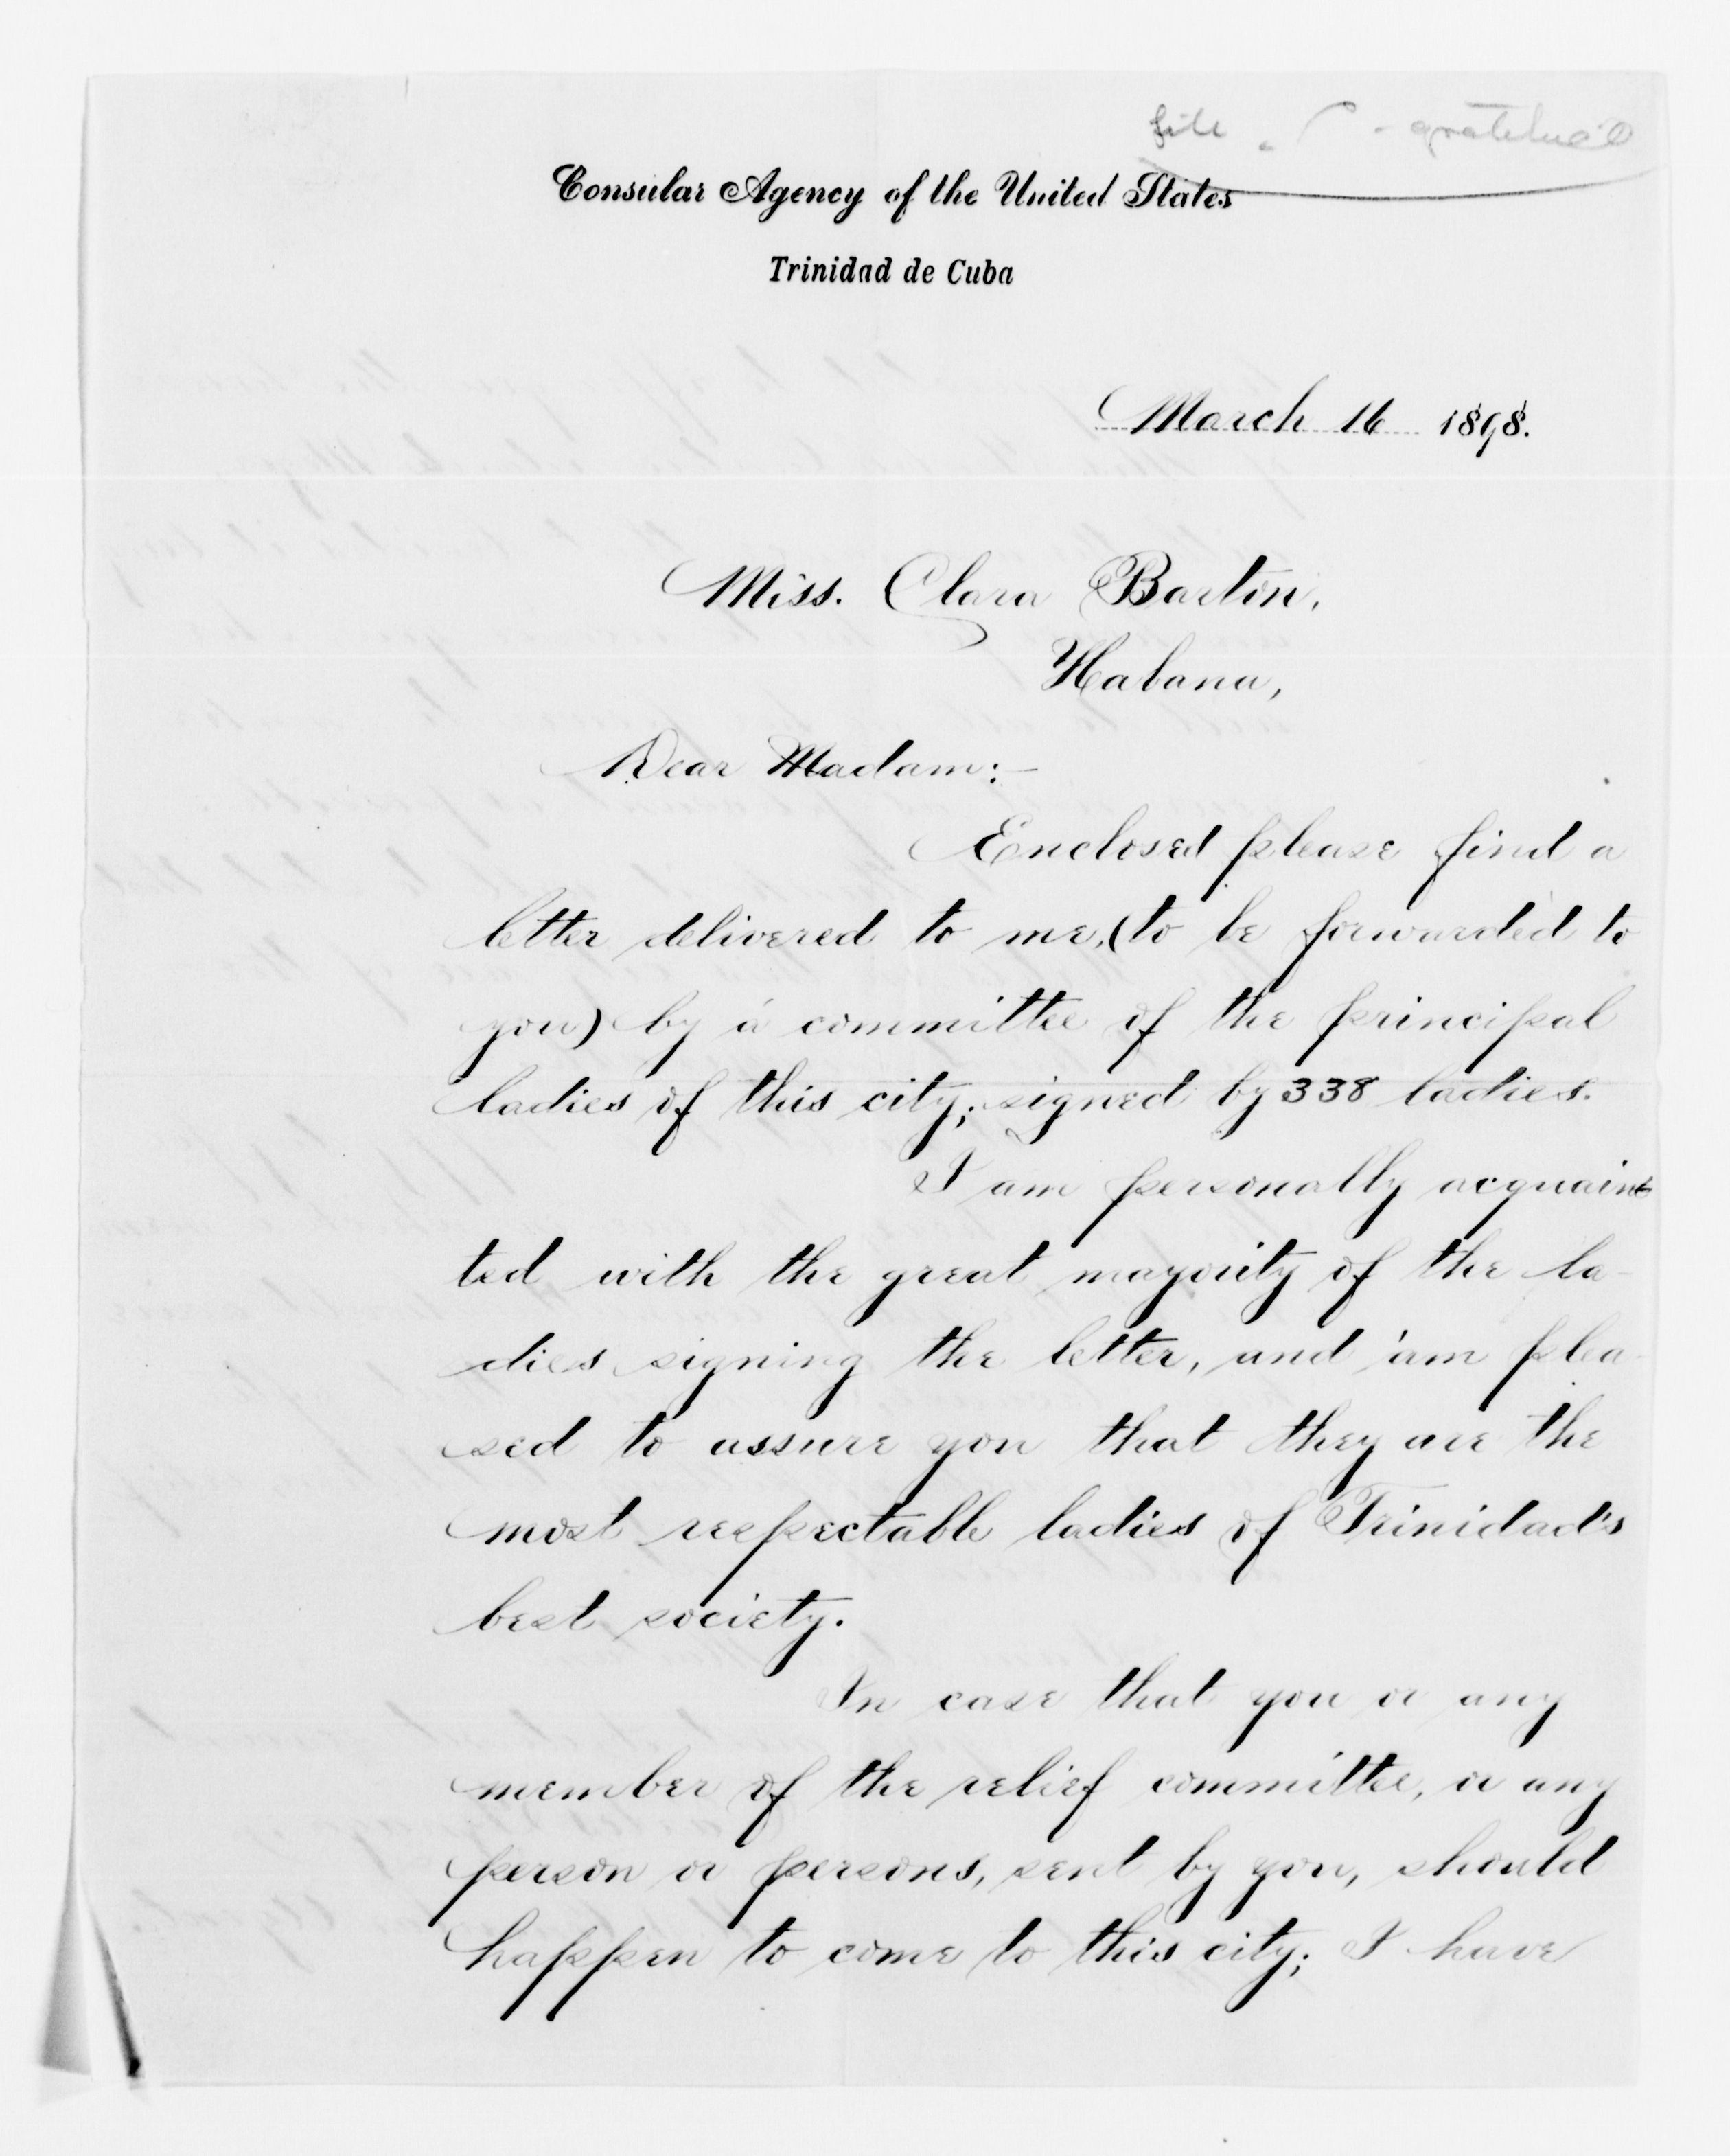 file - C - gratitude
Consular Agency of the United States
Trinidad de Cuba
March 16 1898.
Miss. Clara Barton,
Habana,
Dear Madam:-
Enclosed please find a
letter delivered to me, (to be forwarded to
you) by a committee of the principal
ladies of this city; signed by 338 ladies.
I am personally acquain-
ted with the great mayority of the la-
dies signing the letter, and am plea-
sed to assure you that they are the
most respectable ladies of Trinidad's
best society.
In case that you or any
member of the relief committee, or any
person or persons, sent by you, should
happen to come to this city; I have